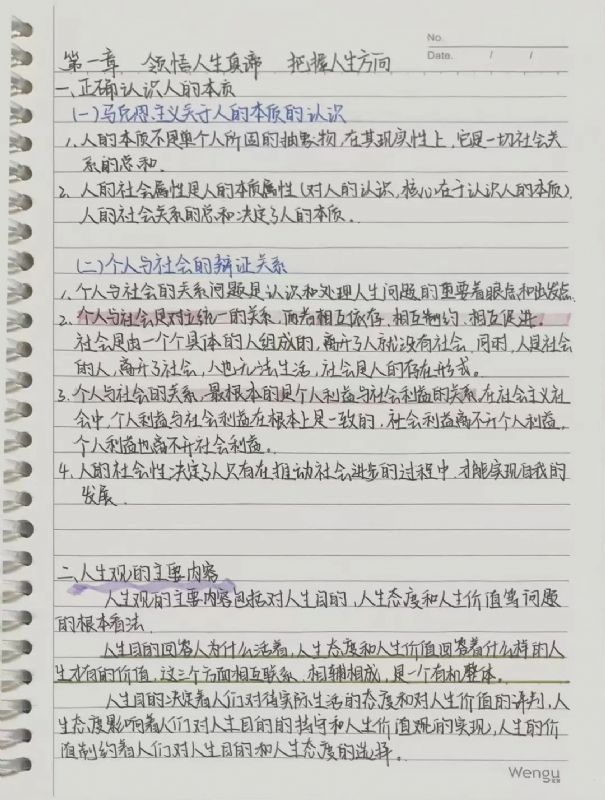 No.
Date. / /
第一章 领悟人生真谛 把握人生方向
一、正确认识人的本质
(一)马克思主义关于人的本质的认识
1、人的本质不是单个人所固的抽象物,在其现实性上,它是一切社会关
系的总和.
2、人的社会属性是人的本质属性(对人的认识,核心在于认识人的本质).
人的社会关系的总和决定了人的本质。
(二)个人与社会的辩证关系
1、个人与社会的关系问题是认识和处理人生问题的重要着眼点和出发点.
2、个人与社会是对立统一的关系,两者相互依存、相互制约、相互促进。
社会是由一个个具体的人组成的,离开了人就没有社会.同时,人是社会
的人,离开了社会,人也无法生活,社会是人的存在形式。
3、个人与社会的关系,最根本的是个人利益与社会利益的关系,在社会主义社
会中,个人利益与社会利益在根本上是一致的,社会利益离不开个人利益,
个人利益也离不开社会利益。
4、人的社会性决定了人只有在推动社会进步的过程中,才能实现自我的
发展.
二、人生观的主要内容
人生观的主要内容包括对人生目的,人生态度和人生价值等问题
的根本看法.
人生目的回答人为什么活着,人生态度和人生价值回答着什么样的人
生才有的价值,这三个方面相互联系、相辅相成,是一个有机整体。
人生目的决定着人们对待实际生活的态度和对人生价值的评判,人
生态度影响着人们对人生目的的持守和人生价值观的实现,人生的价
值制约着人们对人生目的和人生态度的选择。
Wengu